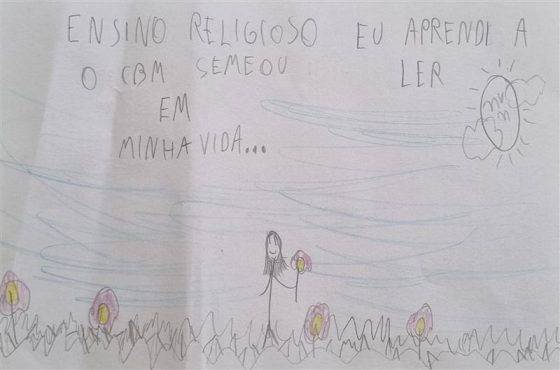 ENSINO RELIGIOSO
O CBM SEMEOU
EM
MINHA VIDA...
EU APRENDI A
LER